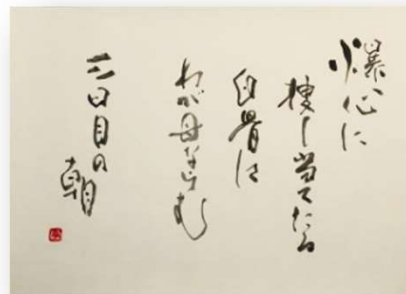 爆心に
捜し当てたる
白骨は
わが母ならむ
三日目の
朝